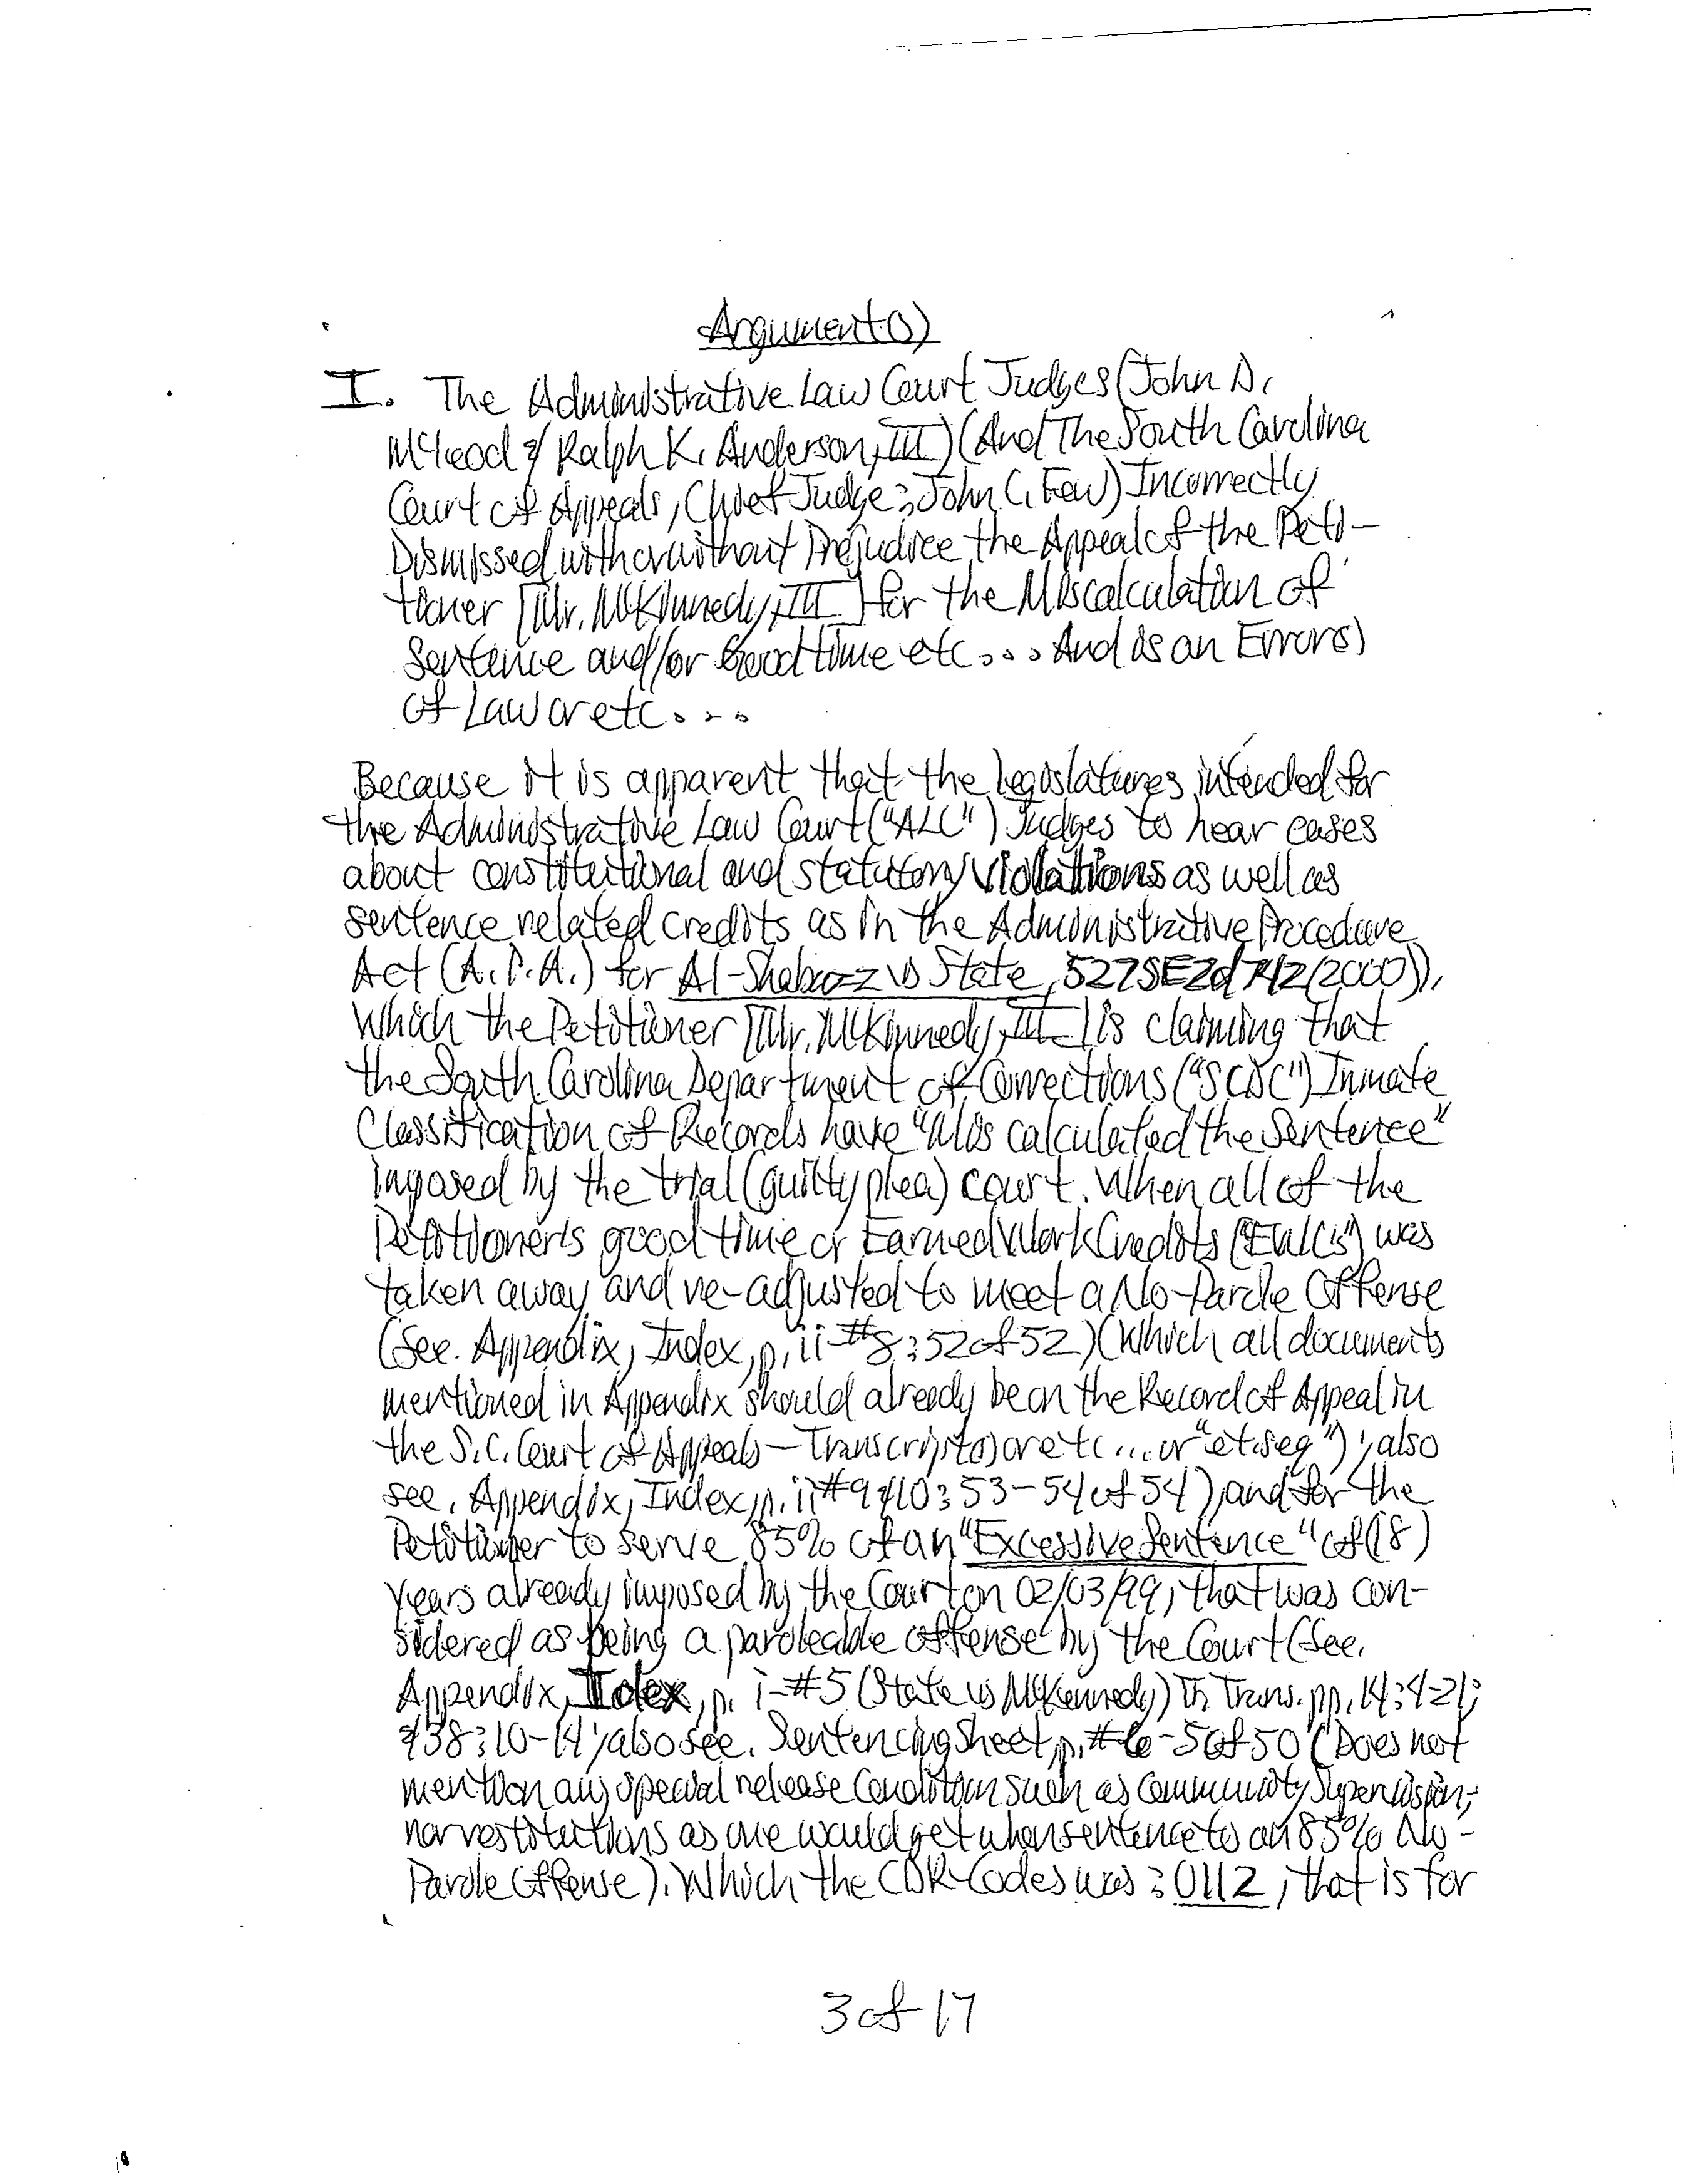 Argument(s)
I. The Administrative Law Court Judges (John D.
McLeod & Ralph K. Anderson, III) (And The South Carolina
Court of Appeals, Chief Judge: John C. Few) Incorrectly
Dismissed with or without Prejudice the Appeal of the Peti-
tioner [Mr. McKinnedy, III] for the Miscalculation of
Sentence and/or Good time etc... And is an Error(s)
of Law or etc...
Because it is apparent that the legislatures intended for
the Administrative Law Court ("ALC") Judges to hear cases
about constitutional and statutory violations as well as
sentence related credits as in the Administrative Procedure
Act (A.P.A.) for Al-Shabazz vs State, 527 SE2d 742 (2000)),
Which the Petitioner [Mr. McKinnedy, III] is claiming that
the South Carolina Department of Corrections ("SCDC") Inmate
Classification of Records have "Mis calculated the Sentence"
imposed by the trial (guilty plea) court. When all of the
Petitioner's good time or Earned Work Credits ("EWC's") was
taken away and re-adjusted to meet a No-Parole Offense
(See. Appendix, Index, p. ii-#8: 52 of 52) (Which all documents
mentioned in Appendix should already be on the Record of Appeal in
the S.C. Court of Appeals-Transcript(s) or etc... or "et. seq."); also
see, Appendix, Index, p. ii #9 & 10: 53-54 of 54), and for the
Petitioner to serve 85% of an "Excessive Sentence" of (18)
years already imposed by the Court on 02/03/99, that was con-
sidered as being a paroleable offense by the Court (See.
Appendix, Index, p. i-#5 (State vs McKennedy) Tr. Trans. pp. 14:4-21;
& 38:10-14; also see. Sentencing Sheet, p. #6-50 of 50 (Does not
mention any special release condition such as Community Supervision;
nor restitutions as one would get when sentence to an 85% No-
Parole Offense). Which the CDR-Codes was: 0112, that is for
3 of 17